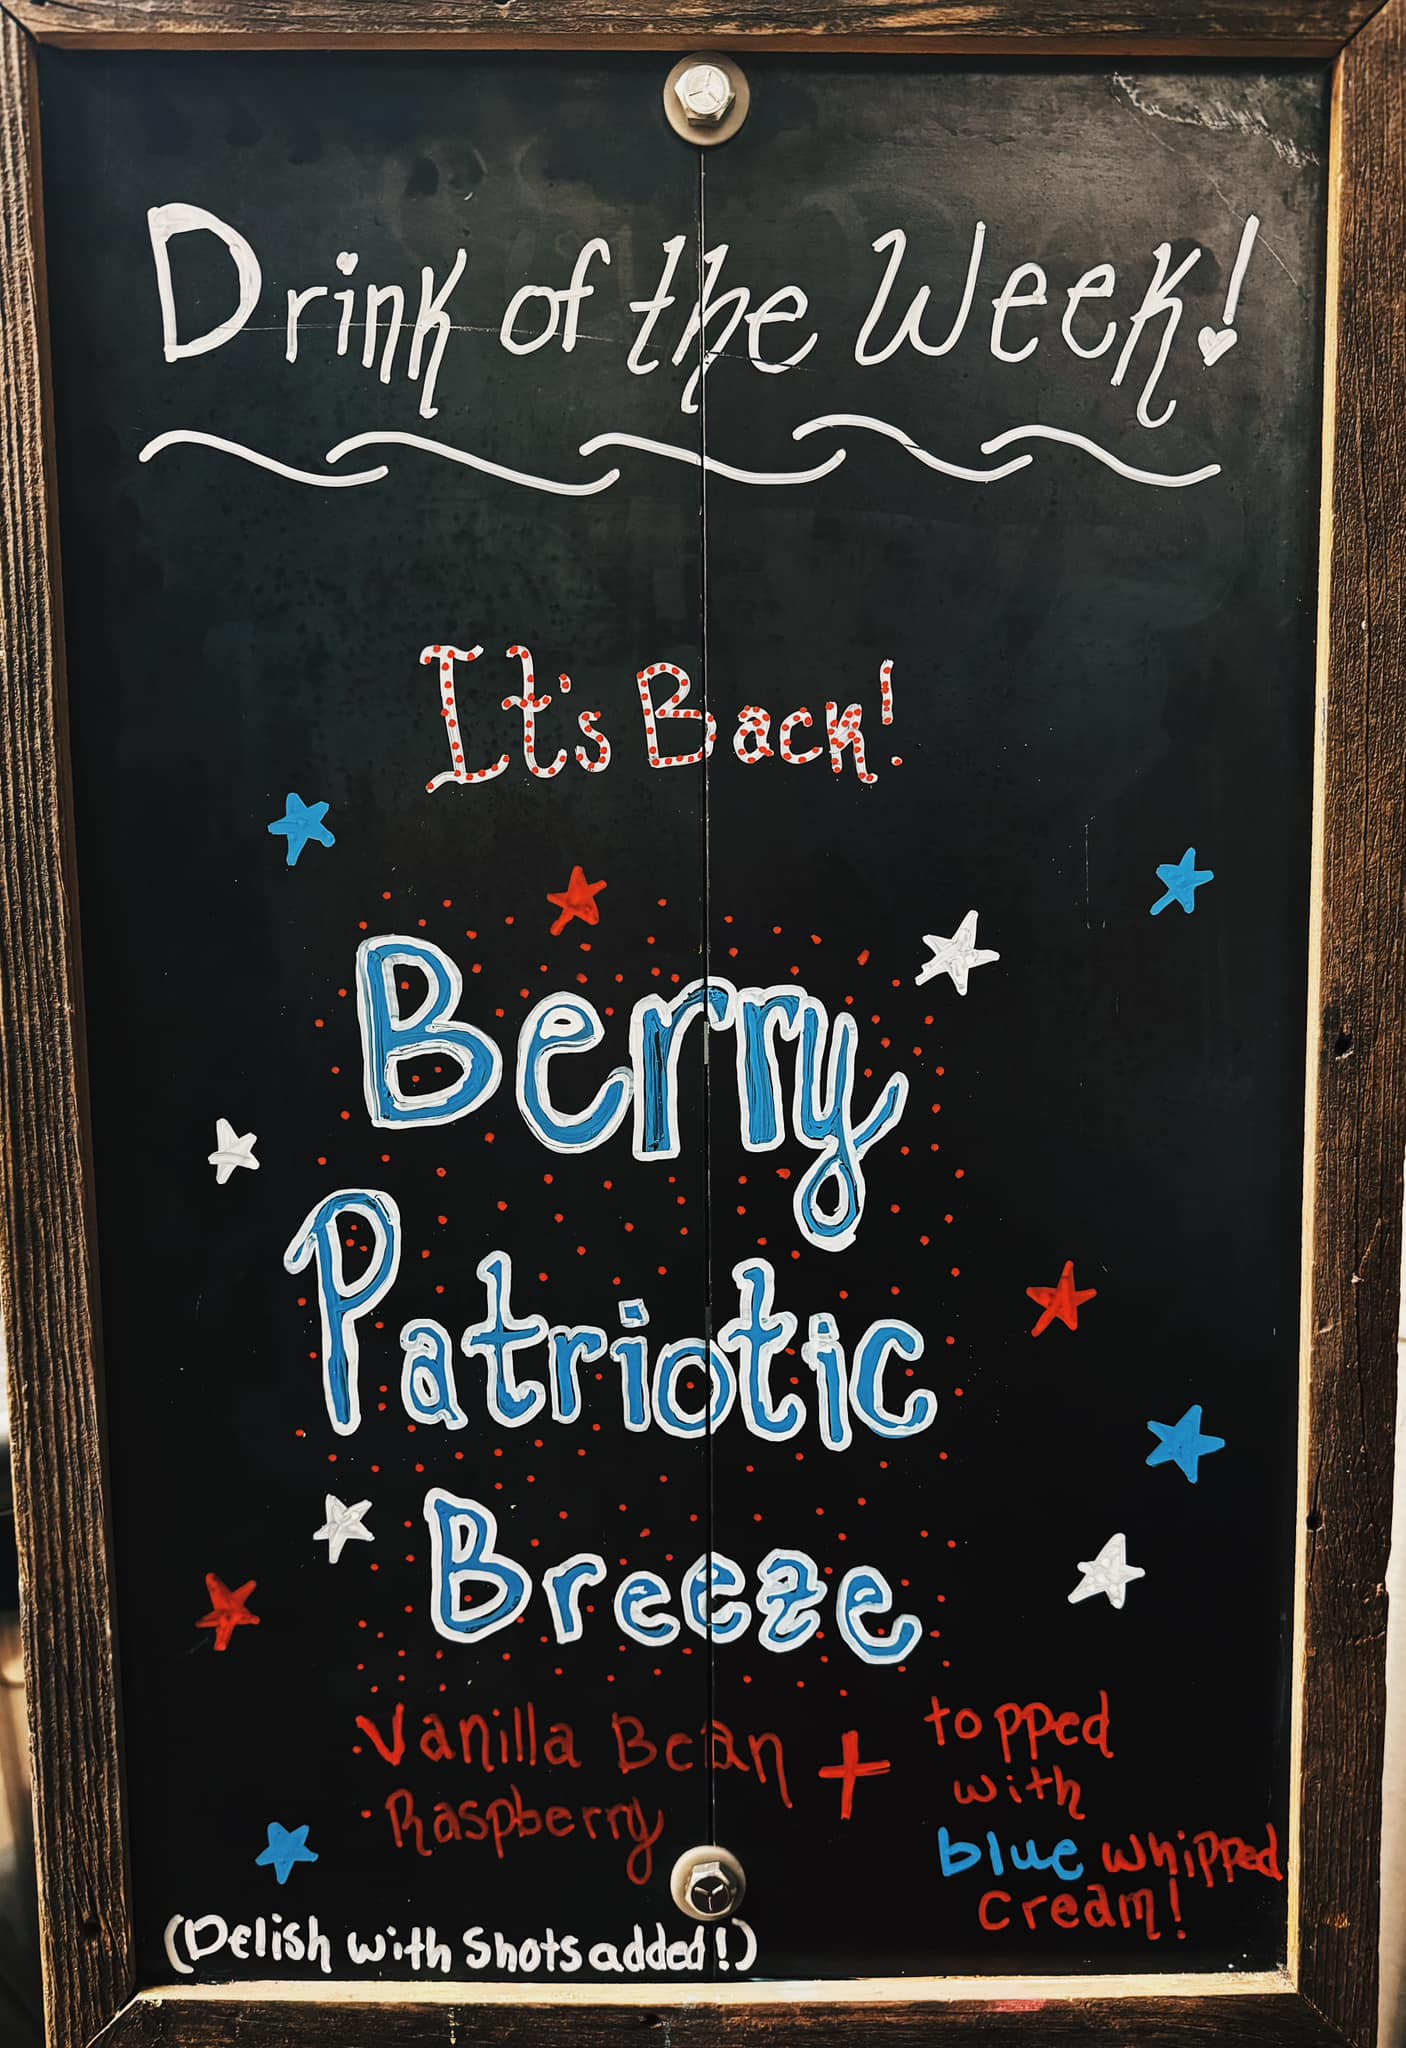 Drink of the Week!
It's Back!
Berry
Patriotic
Breeze
· Vanilla Bean
· Raspberry
+
topped
with
blue whipped
cream!
(Delish with Shots added!)